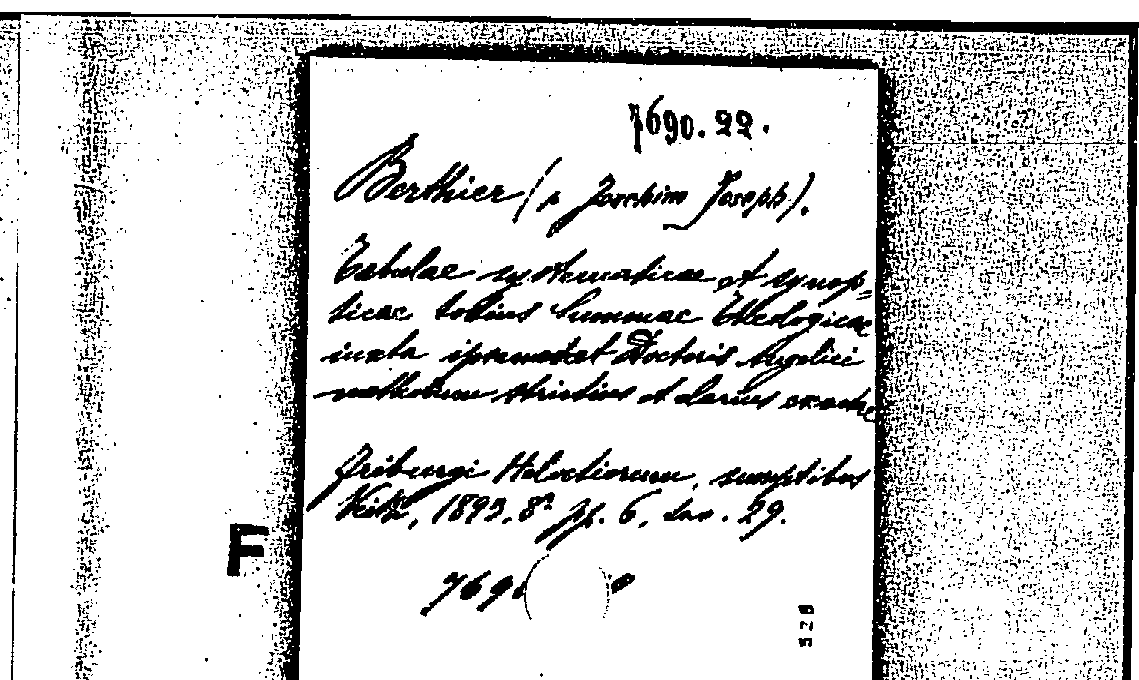 7690.22.
Berthier (p. Joachim Joseph).
Tabulae systematicae et synop-
ticae totius Summae Theologicae
iuxta ipsammet Doctoris Angelici
methodum strictius et clarius exactae
Friburgi Helvetiorum, sumptibus
Veith, 1893. 8º pp. 6, tav. 29.
769
F
528